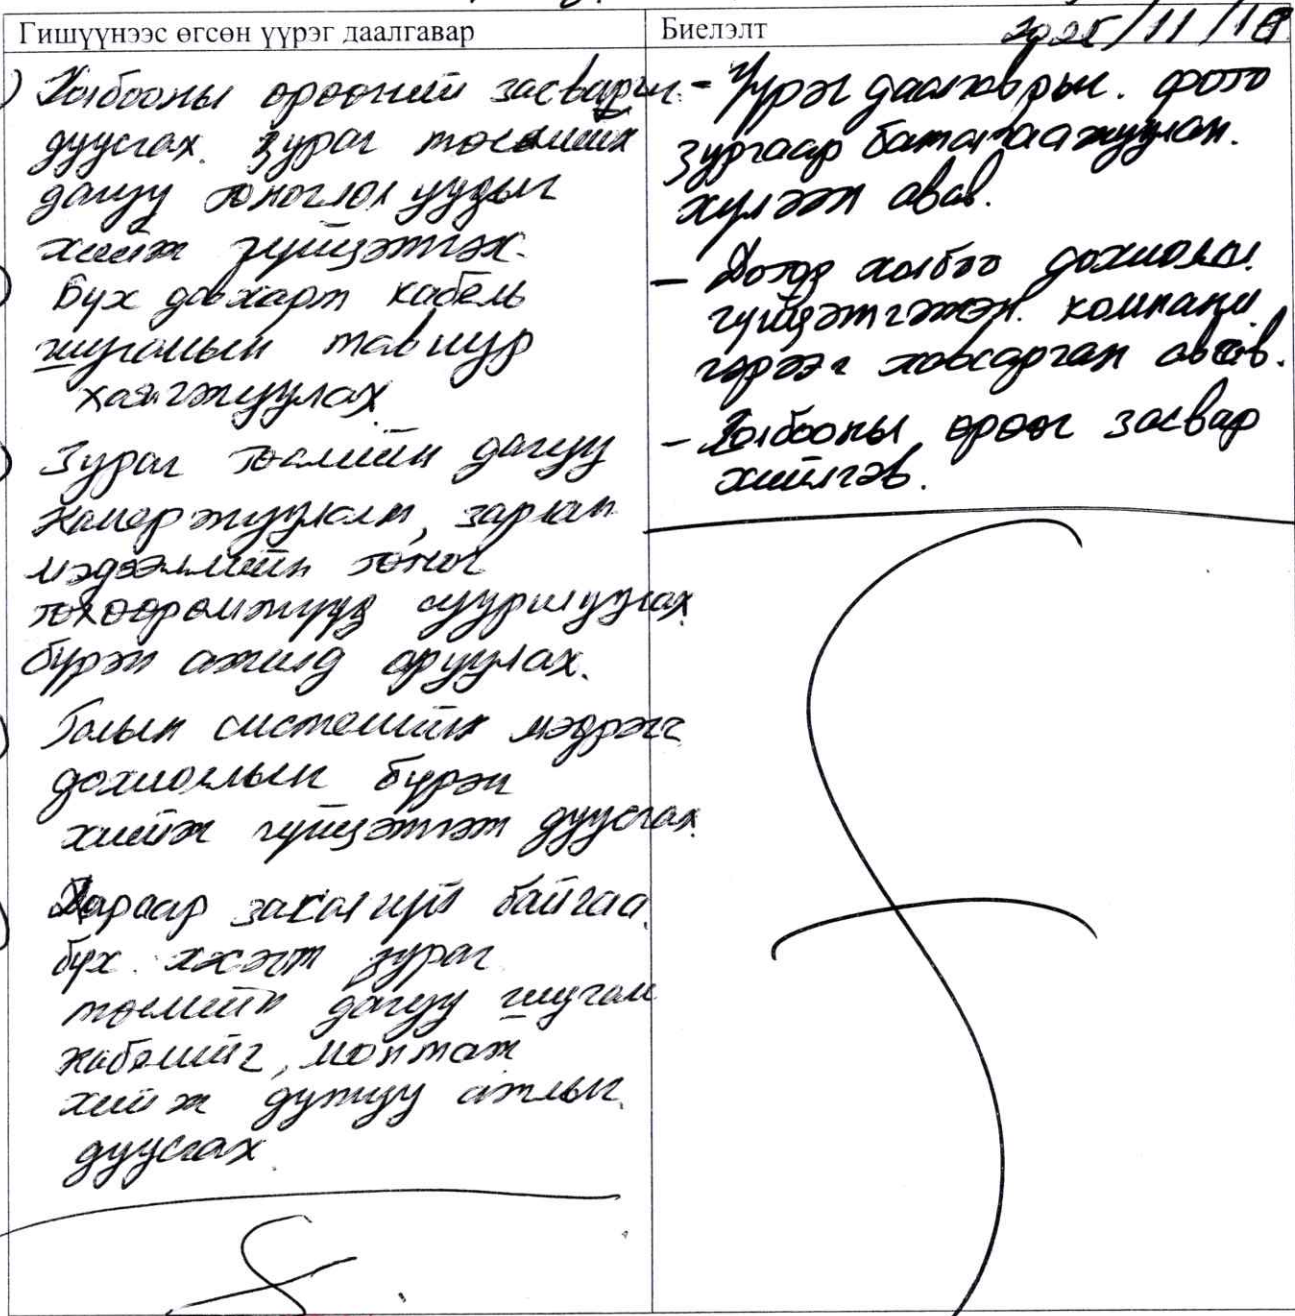 Гишүүнээс өгсөн үүрэг даалгавар
Биелэлт
2025/11/18
) Холбооны өрөөний засварыг
дуусгах. Зураг төслийн
дагуу тоноглол уудыг
хийж гүйцэтгэх.
Бүх давхарт кабель
шугамын тавиур
хаягжуулах
Зураг төслийн дагуу
камержуулалт, зарлан
мэдээллийн тоног
төхөөрөмжүүд суурилуулах
бүрэн ажилд оруулах.
Галын системийн мэдрэгч
дохиоллын бүрэн
хийж гүйцэтгэж дуусгах
Дараар заслагүй байгаа
бүх хэсэгт зураг
төслийн дагуу шугам
кабелийг, монтаж
хийж дутуу ажлыг
дуусгах
- Үүрэг даалгаврын. фото
зургаар баталгаажуулан.
хүлээн авав.
- Дотор холбоо дохиолол
гүйцэтгэгч компани
гэрээг хавсарган авав.
- Холбооны өрөөг засвар
хийлгэв.